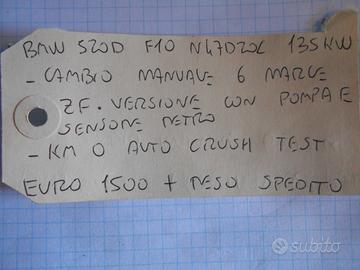 BMW 520D F10 N47D20C 135KW
- CAMBIO MANUALE 6 MARCE
ZF. VERSIONE CON POMPA E
SENSORE RETRO
- KM 0 AUTO CRUSH TEST
EURO 1500 + RESO SPEDITO
subito